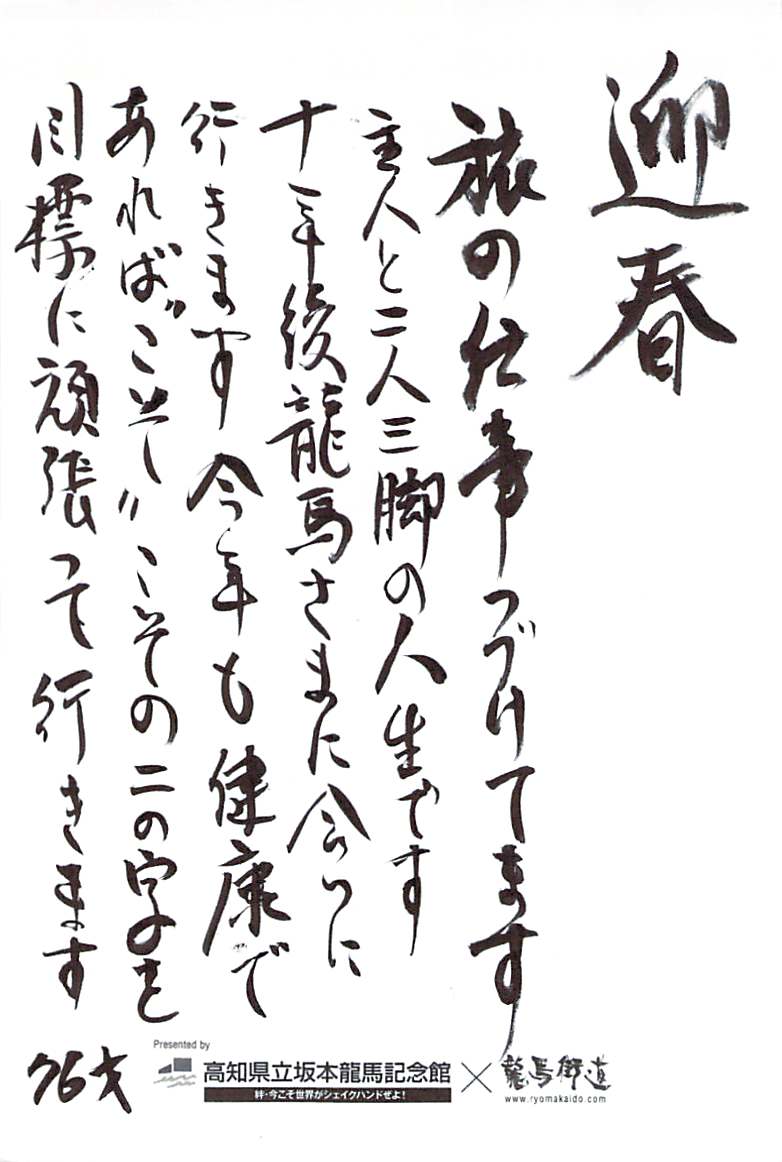 迎春
旅の仕事つづけてます
主人と二人三脚の人生です
十年後龍馬さまに会いに
行きます 今年も健康で
あれば〝こそ〟こその二の字を
目標に頑張って行きます
76才
Presented by
高知県立坂本龍馬記念館
絆・今こそ世界がシェイクハンドぜよ!
×
龍馬街道
www.ryomakaido.com